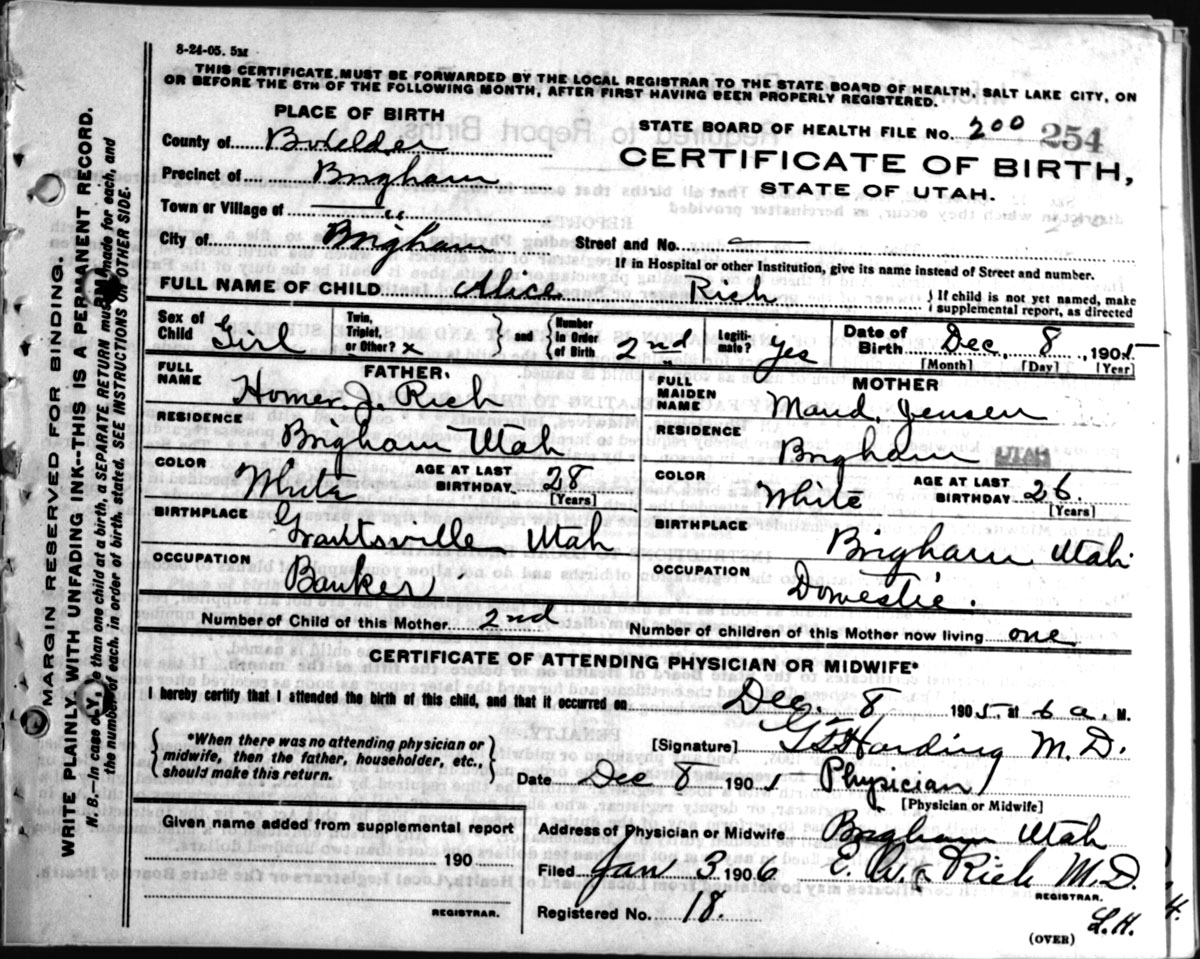 8-24-05. 5M
THIS CERTIFICATE MUST BE FORWARDED BY THE LOCAL REGISTRAR TO THE STATE BOARD OF HEALTH, SALT LAKE CITY, ON
OR BEFORE THE 5TH OF THE FOLLOWING MONTH, AFTER FIRST HAVING BEEN PROPERLY REGISTERED.
PLACE OF BIRTH
STATE BOARD OF HEALTH FILE No. 200 254
County of Boxelder
CERTIFICATE OF BIRTH,
STATE OF UTAH.
Precinct of Brigham
Town or Village of
City of Brigham
Street and No. —
If in Hospital or other Institution, give its name instead of Street and number.
FULL NAME OF CHILD Alice Rich } If child is not yet named, make
supplemental report, as directed
Sex of Child Girl
Twin, Triplet, or Other? x } and { Number in Order of Birth 2nd
Legiti-mate? yes
Date of Birth Dec. 8, 1905
[Month] [Day] [Year]
FATHER.
FULL NAME Homer J. Rich
MOTHER
FULL MAIDEN NAME Maud. Jensen
RESIDENCE Brigham Utah
RESIDENCE Brigham UTAH
COLOR White AGE AT LAST BIRTHDAY. 28
[Years]
COLOR White AGE AT LAST BIRTHDAY 26.
[Years]
BIRTHPLACE Grantsville Utah
BIRTHPLACE Brigham Utah
OCCUPATION Banker
OCCUPATION Domestic.
Number of Child of this Mother 2nd
Number of children of this Mother now living one
CERTIFICATE OF ATTENDING PHYSICIAN OR MIDWIFE*
I hereby certify that I attended the birth of this child, and that it occurred on Dec. 8 1905, at 6 a. M.
{ *When there was no attending physician or
midwife, then the father, householder, etc.,
should make this return. }
[Signature] Harding M.D.
Date Dec 8 190
Physician
[Physician or Midwife]
Given name added from supplemental report
190
REGISTRAR.
Address of Physician or Midwife Brigham Utah
Filed Jan 3 1906 E. Rich M.D.
REGISTRAR.
Registered No. 18.
L.H.
(OVER)
MARGIN RESERVED FOR BINDING.
WRITE PLAINLY WITH UNFADING INK--THIS IS A PERMANENT RECORD.
N. B.—In case of more than one child at a birth, a SEPARATE RETURN must be made for each, and
the number of each, in order of birth, stated. SEE INSTRUCTIONS ON OTHER SIDE.